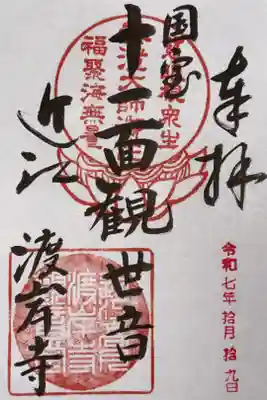 奉拝
令和七年拾月拾九日
国宝
十一面観世音
近江
渡岸寺
福聚海無量